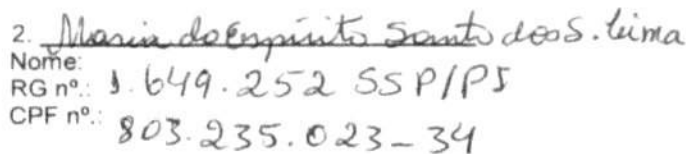 2. Maria do Espírito Santo dos S. Lima
Nome:
RG nº.: 1.649.252 SSP/PI
CPF nº.: 803.235.023-34